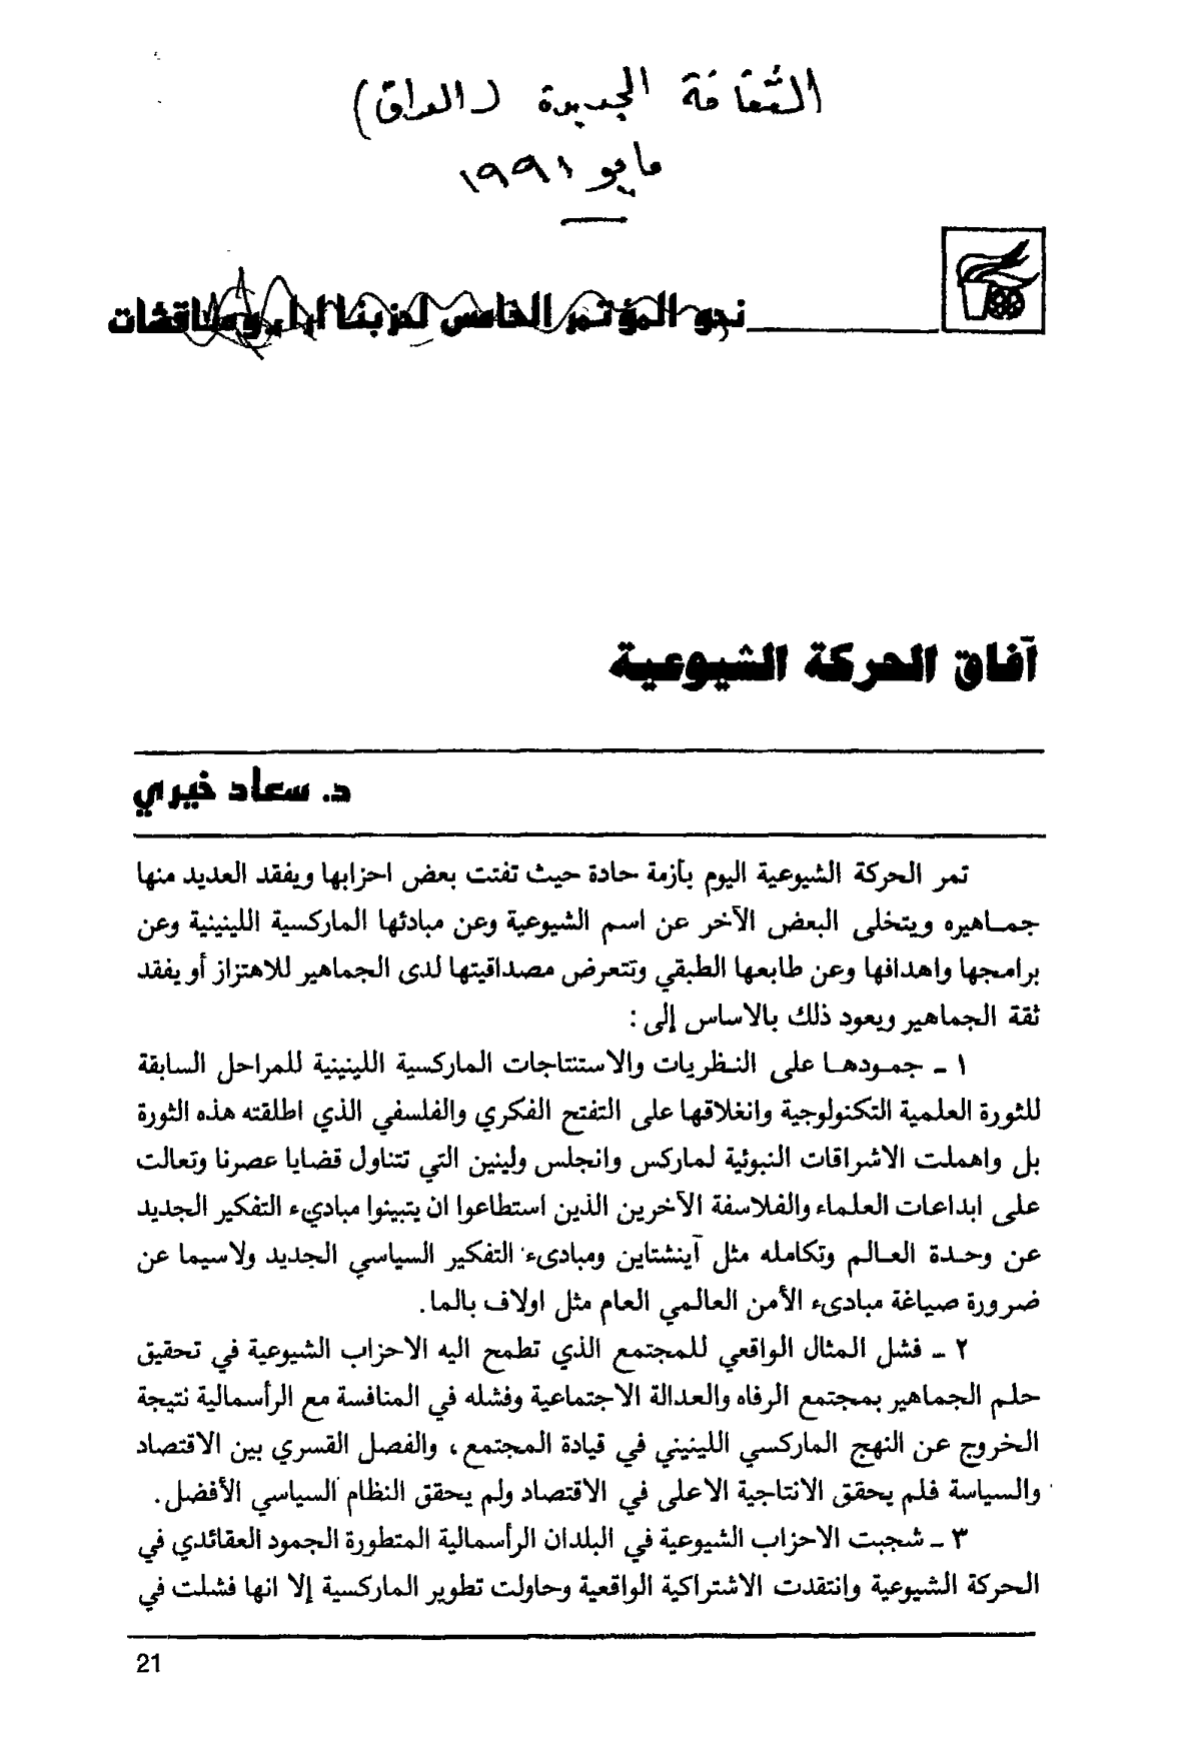 الثقافة الجديدة (العراق)
مايو ١٩٩١
نحو المؤتمر الخامس لحزبنا اراء ومناقشات
آفاق الحركة الشيوعية
د. سعاد خيري
تمر الحركة الشيوعية اليوم بأزمة حادة حيث تفتت بعض احزابها ويفقد العديد منها
جماهيره ويتخلى البعض الآخر عن اسم الشيوعية وعن مبادئها الماركسية اللينينية وعن
برامجها واهدافها وعن طابعها الطبقي وتتعرض مصداقيتها لدى الجماهير للاهتزاز أو يفقد
ثقة الجماهير ويعود ذلك بالاساس إلى :
١ ـ جمودها على النظريات والاستنتاجات الماركسية اللينينية للمراحل السابقة
للثورة العلمية التكنولوجية وانغلاقها على التفتح الفكري والفلسفي الذي اطلقته هذه الثورة
بل واهملت الاشراقات النبوئية لماركس وانجلس ولينين التي تتناول قضايا عصرنا وتعالت
على ابداعات العلماء والفلاسفة الآخرين الذين استطاعوا ان يتبينوا مباديء التفكير الجديد
عن وحدة العالم وتكامله مثل آينشتاين ومبادىء التفكير السياسي الجديد ولاسيما عن
ضرورة صياغة مبادىء الأمن العالمي العام مثل اولاف بالما .
٢ ـ فشل المثال الواقعي للمجتمع الذي تطمح اليه الاحزاب الشيوعية في تحقيق
حلم الجماهير بمجتمع الرفاه والعدالة الاجتماعية وفشله في المنافسة مع الرأسمالية نتيجة
الخروج عن النهج الماركسي اللينيني في قيادة المجتمع ، والفصل القسري بين الاقتصاد
والسياسة فلم يحقق الانتاجية الاعلى في الاقتصاد ولم يحقق النظام السياسي الأفضل .
٣ ـ شجبت الاحزاب الشيوعية في البلدان الرأسمالية المتطورة الجمود العقائدي في
الحركة الشيوعية وانتقدت الاشتراكية الواقعية وحاولت تطوير الماركسية إلا انها فشلت في
21